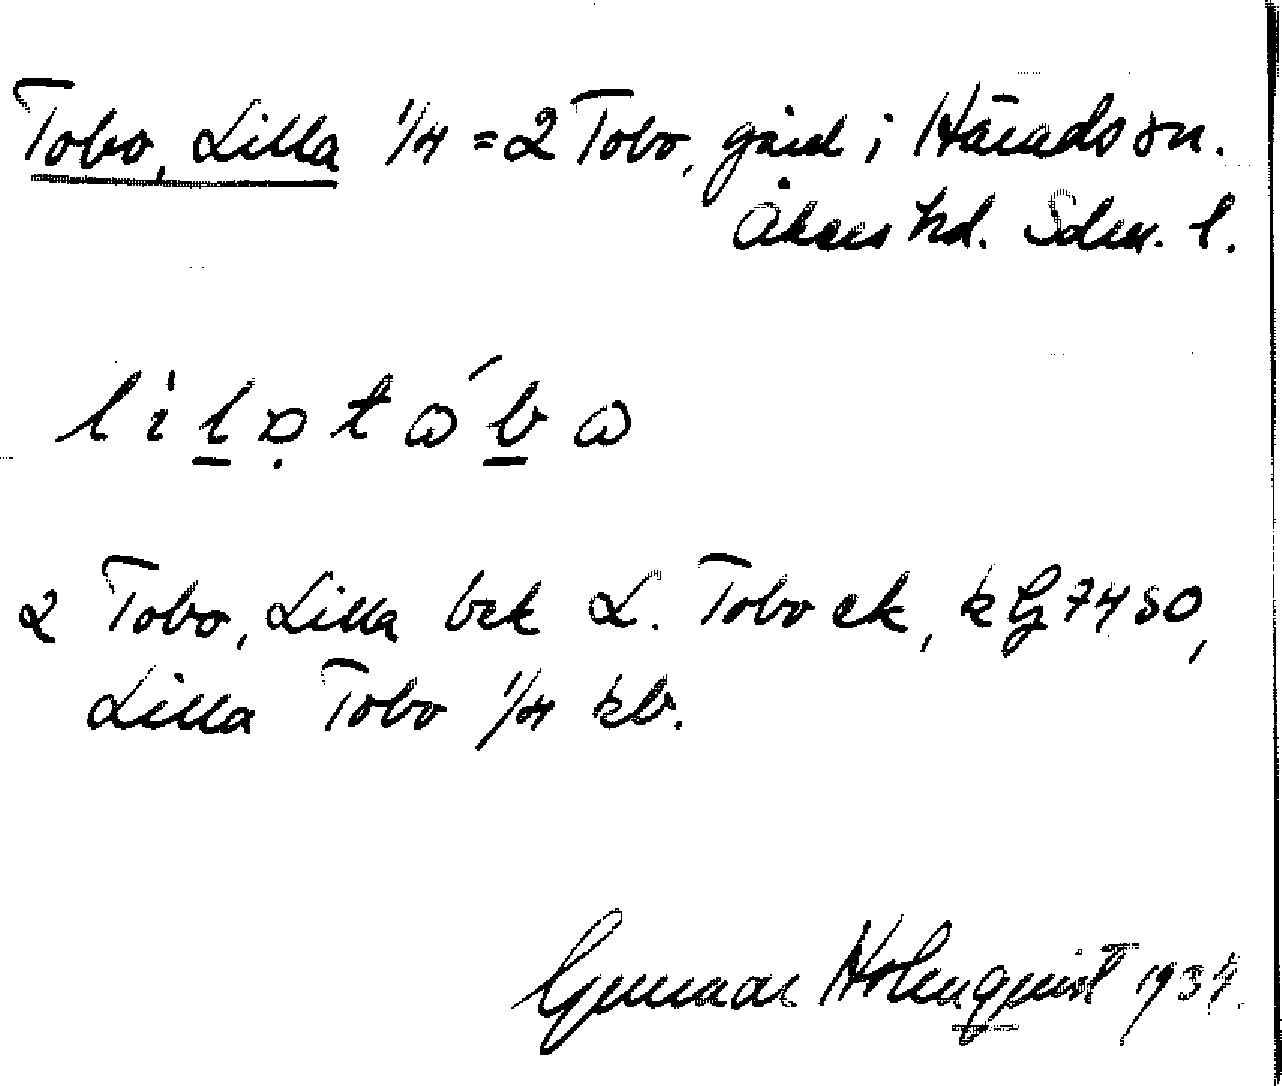 Tobo, Lilla 1/4 = 2 Tobo, gård i Härads sn.
Åkers hd. Sdm. l.
2 Tobo, Lilla bek L. Tobo ek,
Lilla Tobo 1/4 kb.
Gunnar Holmquist 1934.